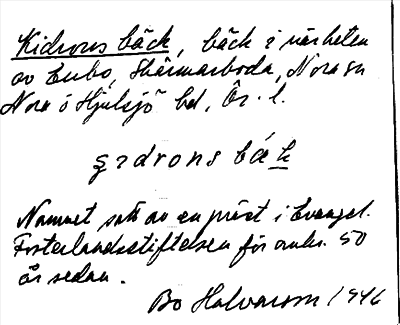 Kidrons bäck, bäck i närheten
av Enbo, Skärmarboda, Nora sn
Nora ó Hjulsjö bd, Ör. l.
bäk
Namnet satt av en präst i Evangel.
Fosterlandsstiftelsen för omkr. 50
år sedan.
Bo Halvarson 1946